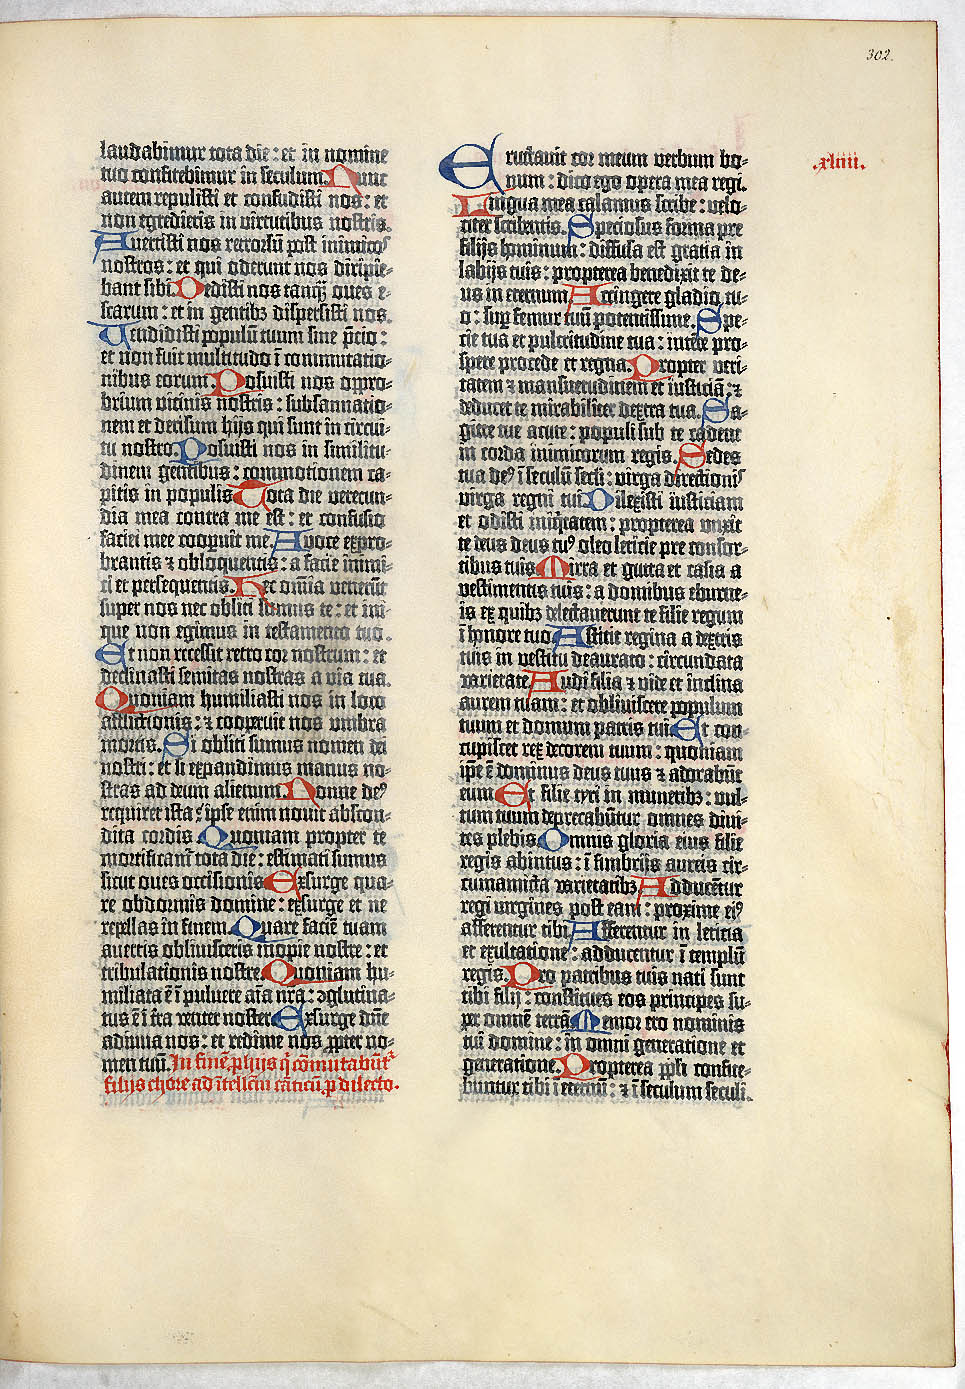 302.
laudabimur tota die : et in nomine
tuo confitebimur in seculum. Nunc
autem repulisti et confudisti nos : et
non egredieris in virtutibus nostris.
Auertisti nos retrorsū post inimicos
nostros : et qui oderunt nos diripie-
bant sibi. Dedisti nos tanqȝ oues e-
scarum : et in gentibȝ dispersisti nos.
Uendidisti populū tuum sine p̄cio :
et non fuit multitudo ī commutatio-
nibus eorum. Posuisti nos oppro-
brium vicinis nostris : subsannatio-
nem et derisum hijs qui sunt in circui-
tu nostro. Posuisti nos in similitu-
dinem gentibus : commotionem ca-
pitis in populis. Tota die verecun-
dia mea contra me est : et confusio
faciei mee cooperuit me. A voce expro-
brantis ⁊ obloquentis : a facie inimi-
ci et persequentis. Hec om̄ia venerūt
super nos nec obliti sumus te : et ini-
que non egimus in testamento tuo.
Et non recessit retro cor nostrum : et
declinasti semitas nostras a via tua.
Quoniam humiliasti nos in loco
afflictionis : ⁊ cooperuit nos umbra
mortis. Si obliti sumus nomen dei
nostri : et si expandimus manus no-
stras ad deum alienum. Nonne deꝰ
requiret ista : ipse enim nouit abscon-
dita cordis. Quoniam propter te
mortificamur tota die : estimati sumus
sicut oues occisionis. Exsurge qua-
re obdormis domine : exsurge et ne
repellas in finem. Quare faciē tuam
auertis obliuisceris inopie nostre : et
tribulationis nostre. Quoniam hu-
miliata ē ī puluere aīa nr̄a : ꝯglutina-
tus ē ī t̄ra venter noster. Exsurge dn̄e
adiuua nos : et redime nos ꝓpter no-
men tuū. In finē ꝓ hijs qͥ cōmutabūtʳ
filijs chore ad ītellectū cāticū ꝓ dilecto.
Eructauit cor meum verbum bo-
num : dico ego opera mea regi.
Lingua mea calamus scribe : velo-
citer scribentis. Speciosus forma pre
filijs hominum : diffusa est gratia in
labijs tuis : propterea benedixit te de-
us in eternum. Accingere gladio tu-
o : suꝑ femur tuū potentissime. Spe-
cie tua et pulcritudine tua : intēde pro-
spere procede et regna. Propter veri-
tatem ⁊ mansuetudinem et iusticiā : ⁊
deducet te mirabiliter dextera tua. Sa-
gitte tue acute : populi sub te cadent
in corda inimicorum regis. Sedes
tua deꝰ ī seculū secli : virga directionis
virga regni tui. Dilexisti iusticiam
et odisti iniq̄tatem : propterea vnxit
te deus deus tuꝰ oleo leticie pre consor-
tibus tuis. Mirra et gutta et casia a
vestimentis tuis : a domibus eburne-
is ex quibȝ delectauerunt te filie regum
ī honore tuo. Astitit regina a dextris
tuis in vestitu deaurato : circundata
varietate. Audi filia ⁊ vide et inclina
aurem tuam : et obliuiscere populum
tuum et domum patris tui. Et con-
cupiscet rex decorem tuum : quoniam
ip̄e ē dominus deus tuus ⁊ adorabūt
eum. Et filie tyri in muneribȝ : vul-
tum tuum deprecabūtur omnes diui-
tes plebis. Omnis gloria eius filie
regis abintus : ī fimbrijs aureis cir-
cumamicta varietatibȝ. Adducētur
regi virgines post eam : proxime eiꝰ
afferentur tibi. Afferentur in leticia
et exultatione : adducentur ī templū
regis. Pro patribus tuis nati sunt
tibi filij : constitues eos principes su-
per omnē terrā. Memor ero nominis
tui domine : in omni generatione et
generatione. Propterea ppl̄i confite-
buntur tibi ī eternū : ⁊ ī seculum seculi.
.xliiii.